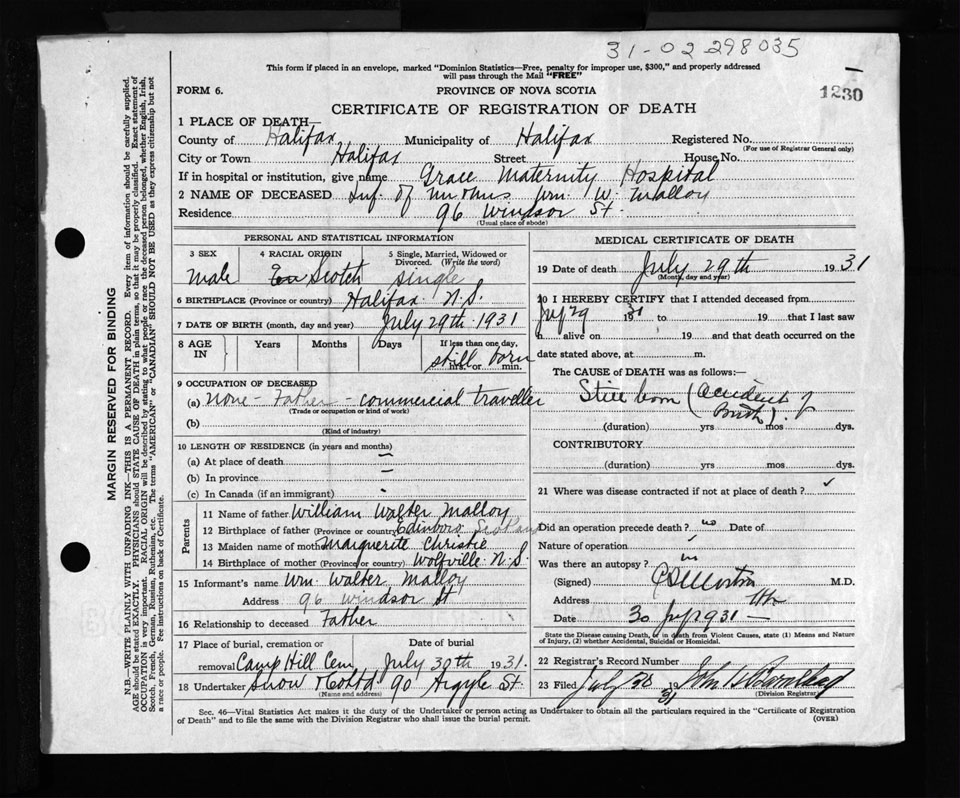 31-02-298035
This form if placed in an envelope, marked "Dominion Statistics—Free, penalty for improper use, $300," and properly addressed
will pass through the Mail "FREE"
FORM 6.
PROVINCE OF NOVA SCOTIA
1230
CERTIFICATE OF REGISTRATION OF DEATH
1 PLACE OF DEATH—
County of Halifax Municipality of Halifax Registered No.
(For use of Registrar General only)
City or Town Halifax Street House No.
If in hospital or institution, give name Grace Maternity Hospital
2 NAME OF DECEASED Inf. of Mr & Mrs Wm. W. Malloy
Residence 96 Windsor St.
(Usual place of abode)
PERSONAL AND STATISTICAL INFORMATION
3 SEX 4 RACIAL ORIGIN 5 Single, Married, Widowed or
Divorced. (Write the word)
Male Scotch Single
6 BIRTHPLACE (Province or country) Halifax N.S.
7 DATE OF BIRTH (month, day and year) July 29th 1931
8 AGE IN Years Months Days If less than one day,
still born
hrs. or min.
9 OCCUPATION OF DECEASED
(a) None - Father - commercial traveller
(Trade or occupation or kind of work)
(b)
(Kind of industry)
10 LENGTH OF RESIDENCE (in years and months)
(a) At place of death —
(b) In province —
(c) In Canada (if an immigrant)
Parents
11 Name of father William Walter Malloy
12 Birthplace of father (Province or country) Edinboro Scotland
13 Maiden name of mother Marguerite Christie
14 Birthplace of mother (Province or country) Wolfville N.S.
15 Informant's name Wm. Walter Malloy
Address 96 Windsor St
16 Relationship to deceased Father
17 Place of burial, cremation or Date of burial
removal Camp Hill Cem July 30th 1931.
18 Undertaker Snow & Co Ltd 90 Argyle St.
(Name and address)
MEDICAL CERTIFICATE OF DEATH
19 Date of death July 29th 1931
(Month, day and year)
20 I HEREBY CERTIFY that I attended deceased from
July 29 1931 to 19 that I last saw
h alive on 19 and that death occurred on the
date stated above, at m.
The CAUSE of DEATH was as follows:—
Still born (accident of
Birth).
(duration) yrs mos dys.
CONTRIBUTORY
(duration) yrs mos dys.
21 Where was disease contracted if not at place of death?
Did an operation precede death? no Date of
Nature of operation
Was there an autopsy?
(Signed) M.D.
Address Hx
Date 30 July 1931 —
State the Disease causing Death, or in death from Violent Causes, state (1) Means and Nature
of Injury, (2) whether Accidental, Suicidal or Homicidal.
22 Registrar's Record Number
23 Filed July 30 1931 John
(Division Registrar)
Sec. 46—Vital Statistics Act makes it the duty of the Undertaker or person acting as Undertaker to obtain all the particulars required in the "Certificate of Registration
of Death" and to file the same with the Division Registrar who shall issue the burial permit. (OVER)
MARGIN RESERVED FOR BINDING
N.B.—WRITE PLAINLY WITH UNFADING INK—THIS IS A PERMANENT RECORD. Every item of information should be carefully supplied.
AGE should be stated EXACTLY. PHYSICIANS should STATE CAUSE OF DEATH in plain terms, so that it may be properly classified. Exact statement of
OCCUPATION is very important. RACIAL ORIGIN will be described by stating to what people or race the deceased person belonged, whether English, Irish,
Scotch, French, German, Russian, Ruthenian, etc. The terms "AMERICAN" or "CANADIAN" SHOULD NOT BE USED as they express citizenship but not
a race or people. See instructions on back of Certificate.